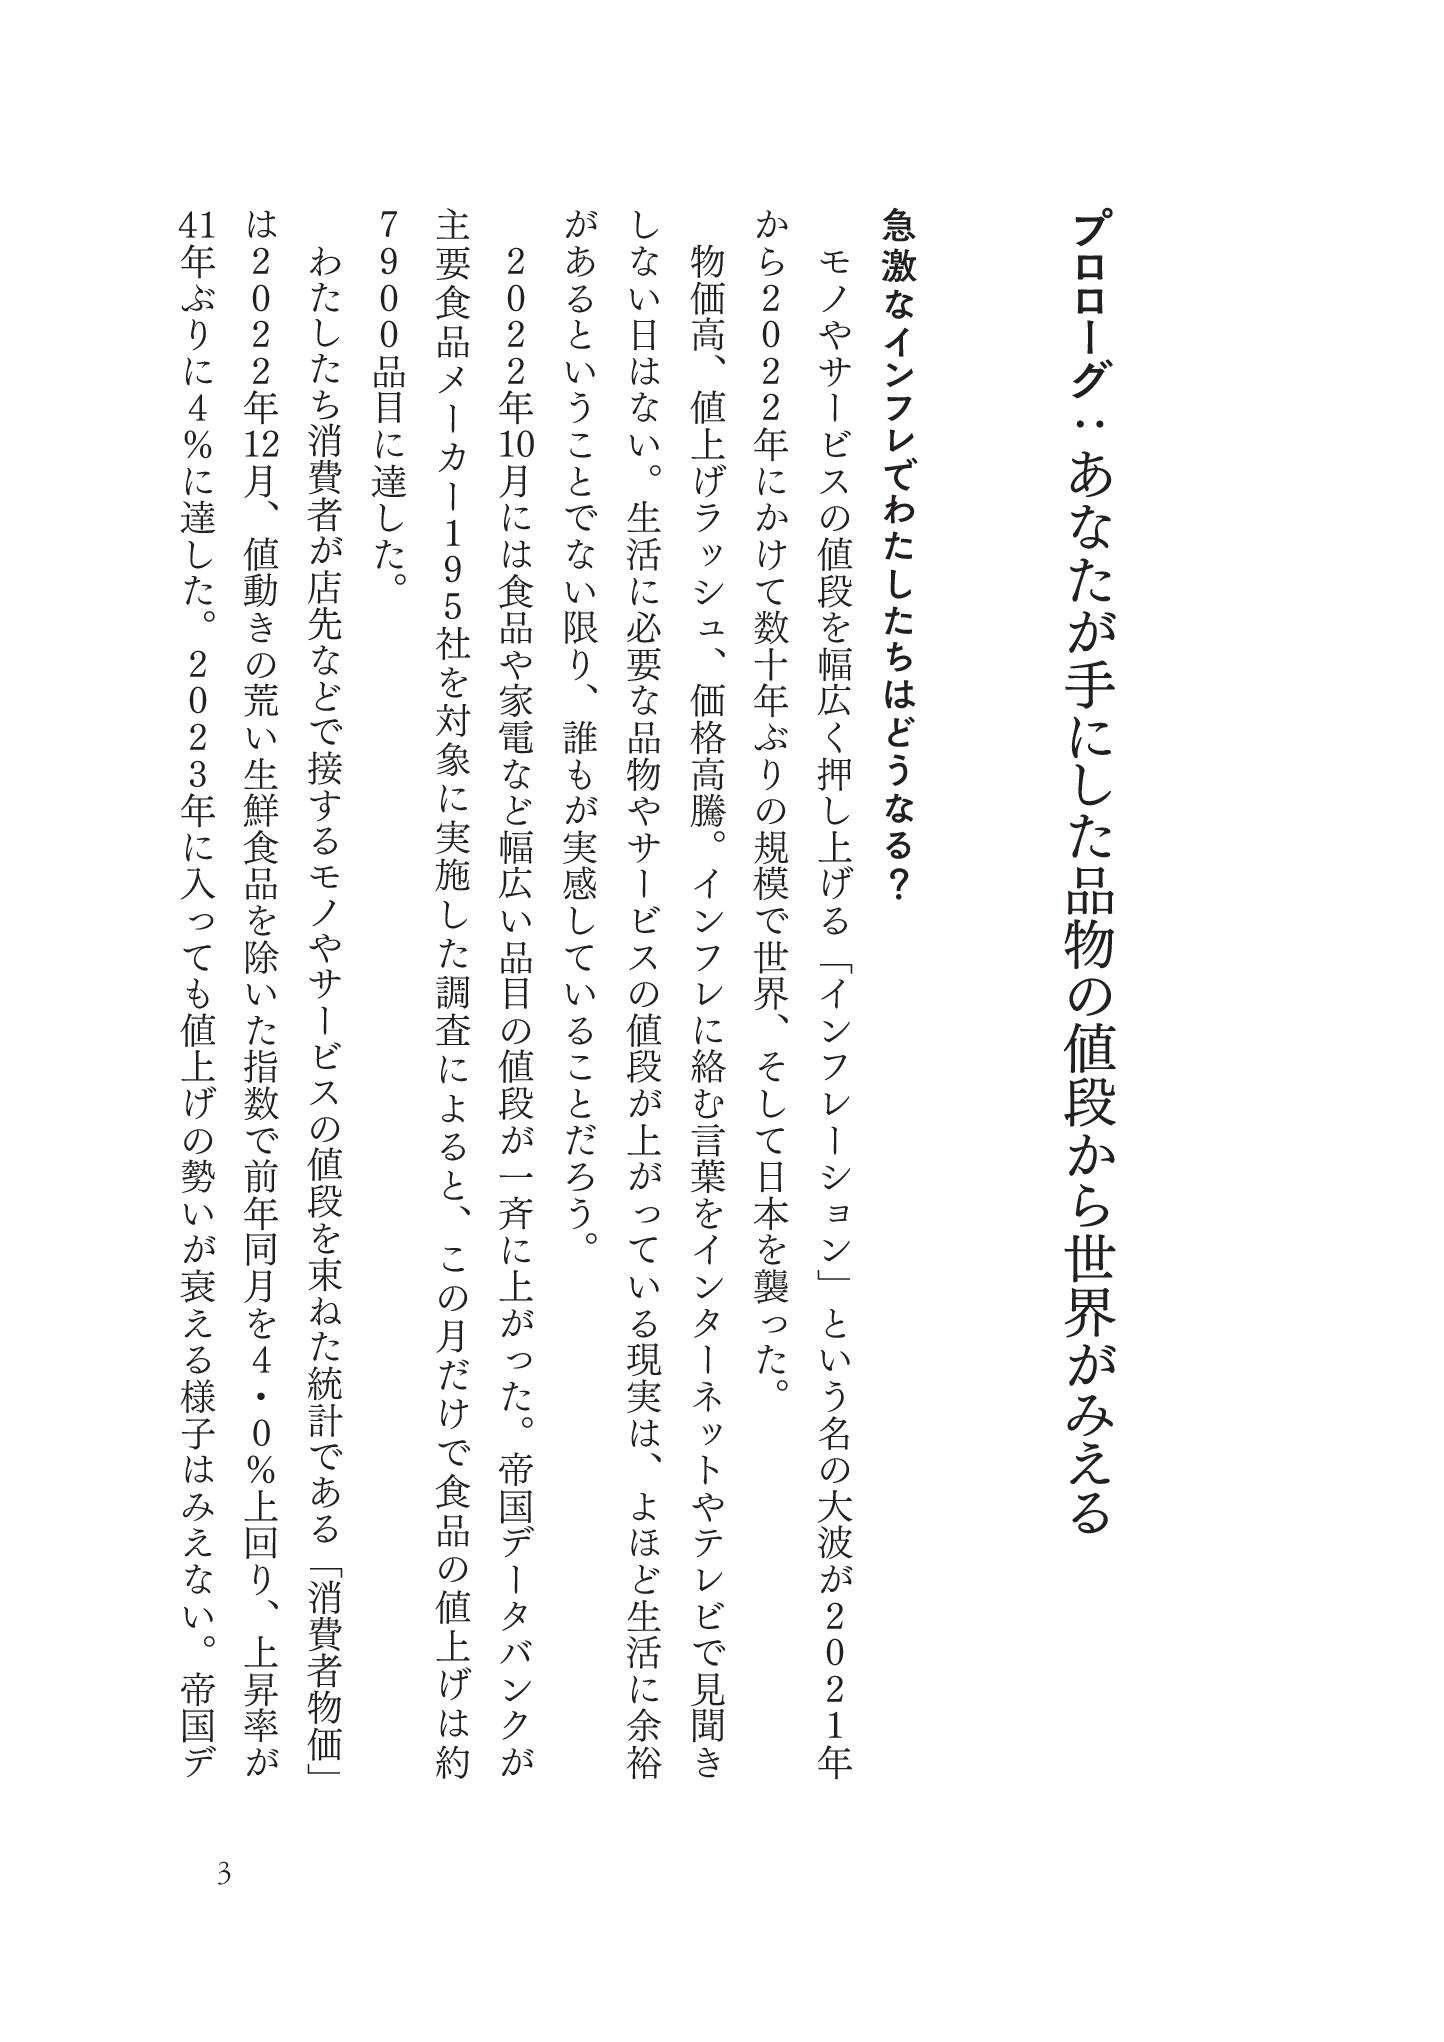 プロローグ：あなたが手にした品物の値段から世界がみえる
急激なインフレでわたしたちはどうなる？
モノやサービスの値段を幅広く押し上げる「インフレーション」という名の大波が2021年
から2022年にかけて数十年ぶりの規模で世界、そして日本を襲った。
物価高、値上げラッシュ、価格高騰。インフレに絡む言葉をインターネットやテレビで見聞き
しない日はない。生活に必要な品物やサービスの値段が上がっている現実は、よほど生活に余裕
があるということでない限り、誰もが実感していることだろう。
2022年10月には食品や家電など幅広い品目の値段が一斉に上がった。帝国データバンクが
主要食品メーカー195社を対象に実施した調査によると、この月だけで食品の値上げは約
7900品目に達した。
わたしたち消費者が店先などで接するモノやサービスの値段を束ねた統計である「消費者物価」
は2022年12月、値動きの荒い生鮮食品を除いた指数で前年同月を4・0％上回り、上昇率が
41年ぶりに4％に達した。2023年に入っても値上げの勢いが衰える様子はみえない。帝国デ
3